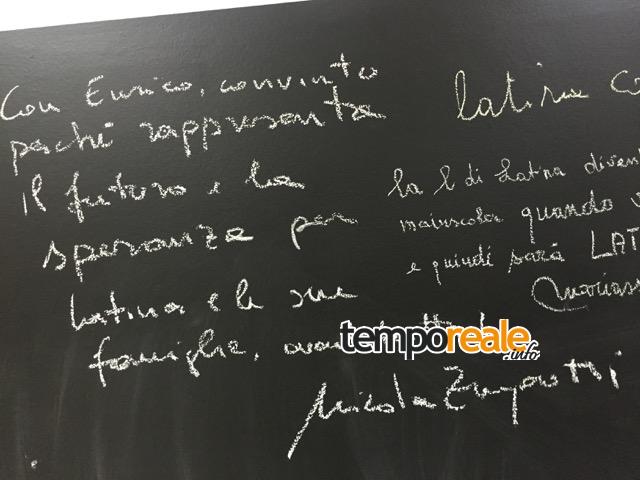 Con Enrico, convinto
perchè rappresenta
il futuro e la
speranza per
Latina e le sue
famiglie,
Nicola
latina
la l di Latina
maiuscola quando
e quindi sarà LAT
temporeale
.info